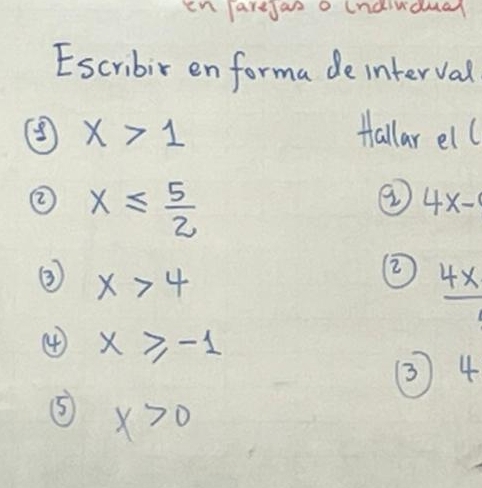 en parejas o individual
Escribir en forma de interval
① x > 1
② x ≤ 5/2
③ x > 4
④ x ≥ -1
⑤ x > 0
Hallar el
① 4x-
② 4x
③ 4